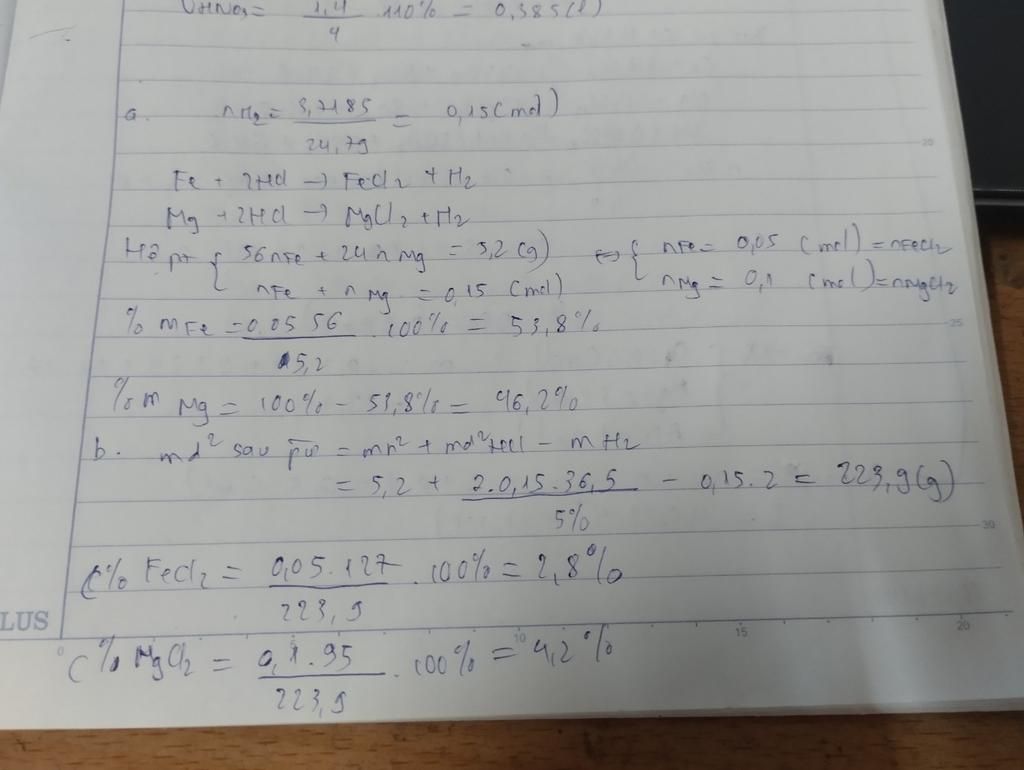 VHNO3 = 1,4 / 4 . 110% = 0,385(l)
a. nH2 = 3,7185 / 24,79 = 0,15(mol)
Fe + 2HCl → FeCl2 + H2
Mg + 2HCl → MgCl2 + H2
Hệ pt { 56nFe + 24nMg = 5,2 (g) ⇔ { nFe = 0,05 (mol) = nFeCl2
nFe + nMg = 0,15 (mol) nMg = 0,1 (mol) = nMgCl2
% mFe = 0,05 56 / 5,2 . 100% = 53,8%
%m Mg = 100% - 53,8% = 46,2%
b. md² sau pư = mh² + md²HCl - mH2
= 5,2 + 2.0,15.36,5 / 5% - 0,15.2 = 223,9(g)
C% FeCl2 = 0,05.127 / 223,9 . 100% = 2,8%
C% MgCl2 = 0,1.95 / 223,9 . 100% = 4,2%
LUS
20
25
30
0
10
15
20